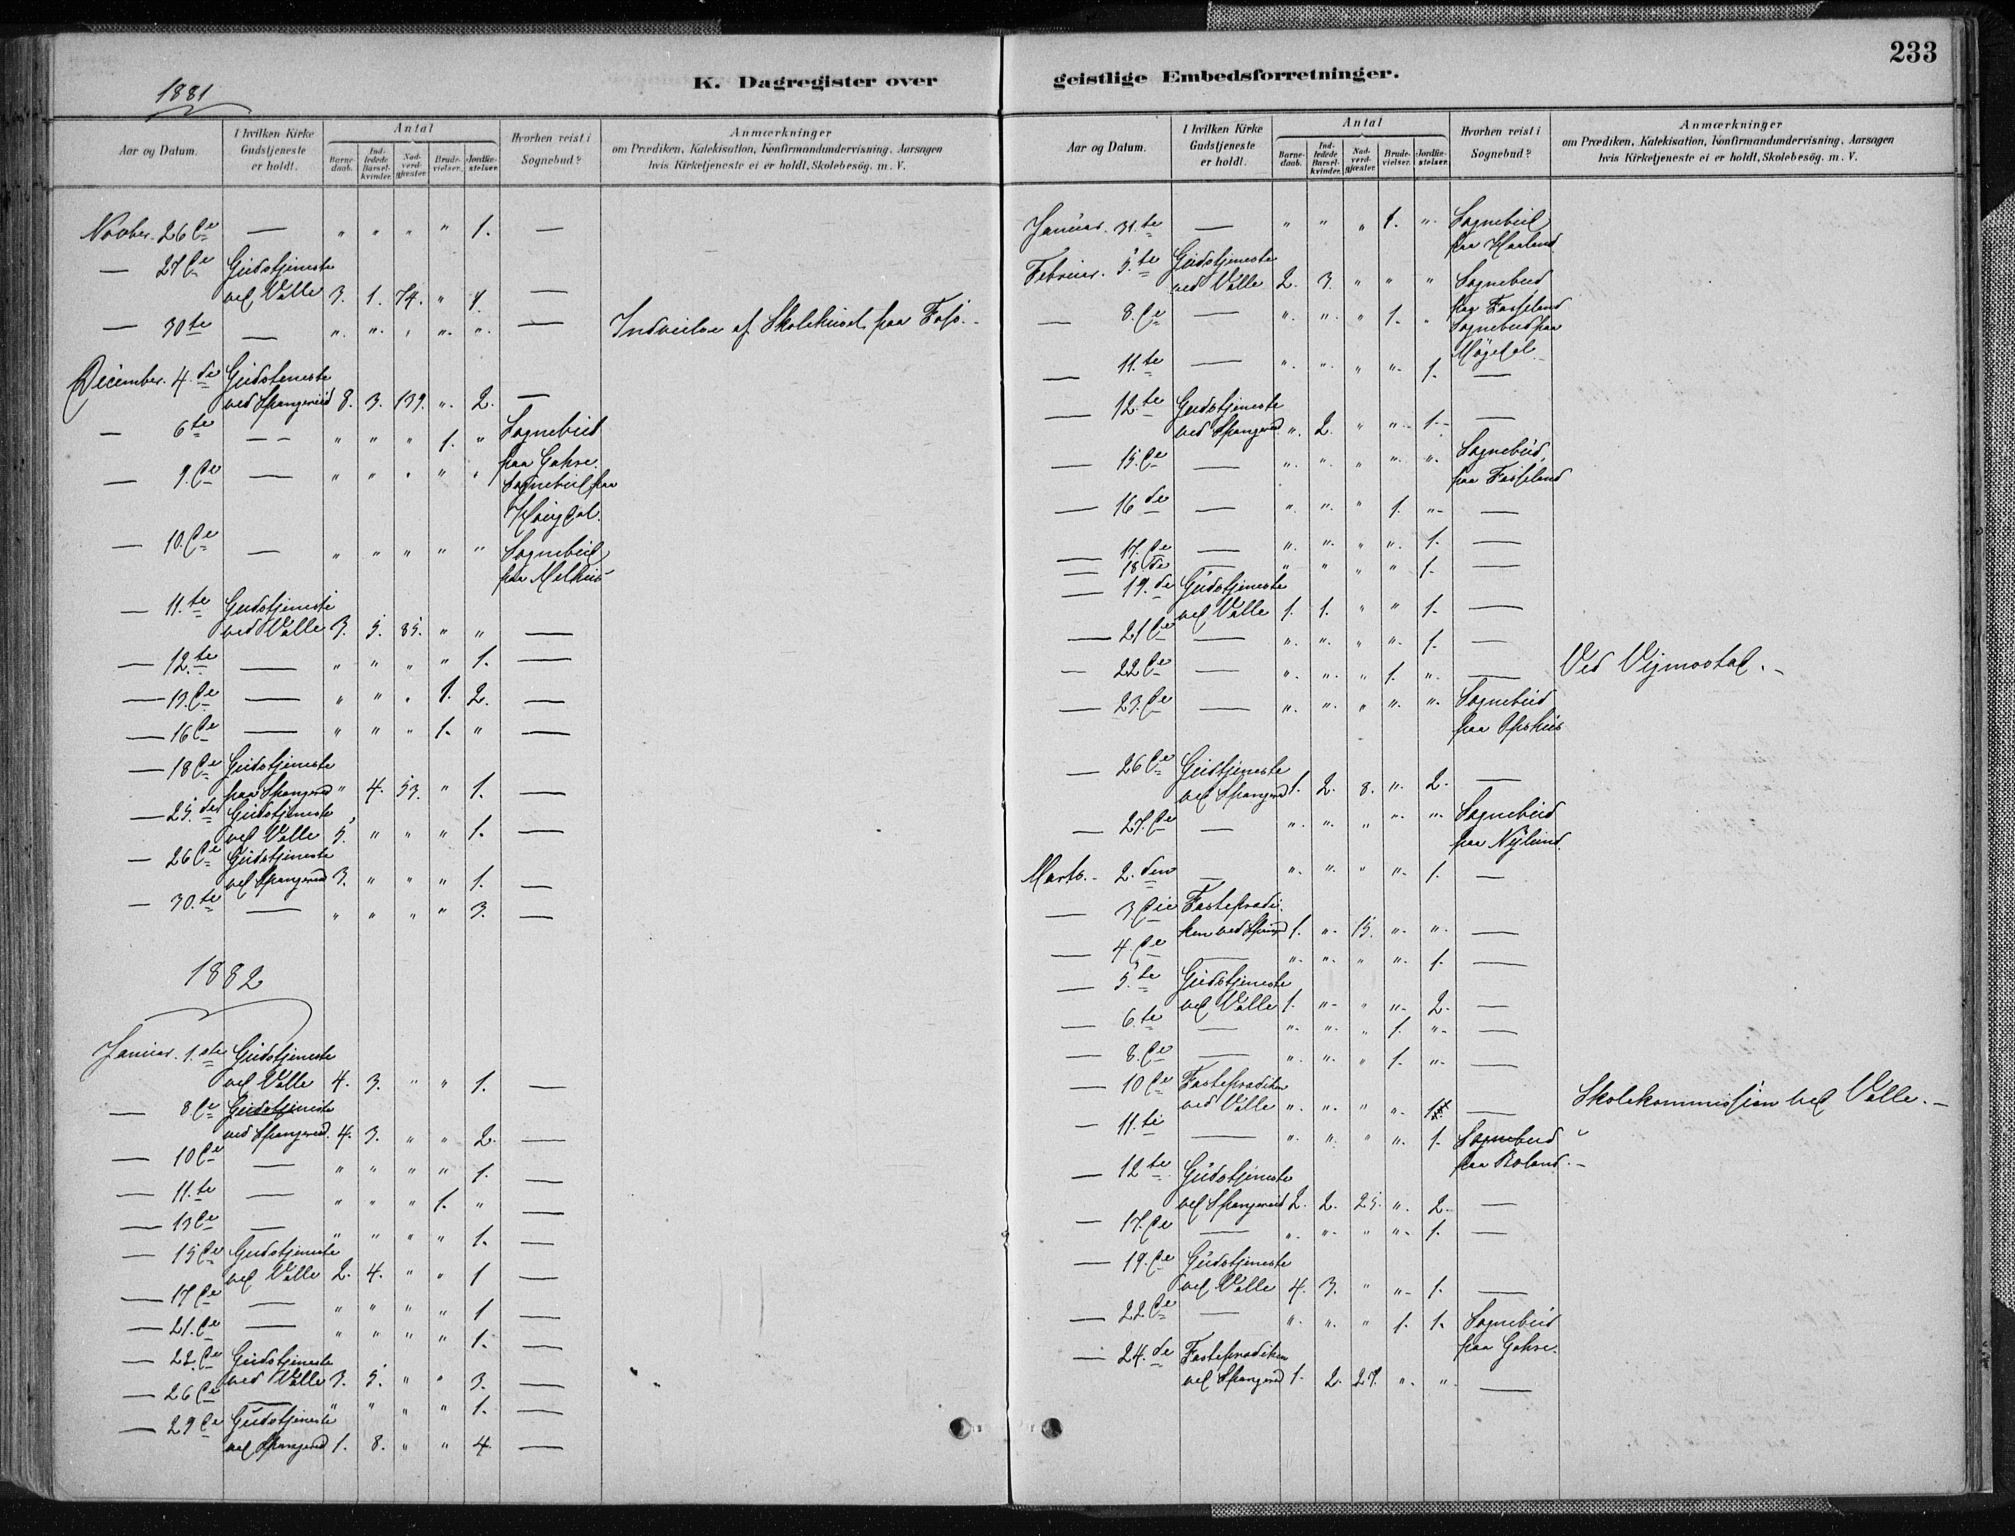 233
K. Dagregister over geistlige Embedsforretninger.
1881
Aar og Datum.
I hvilken Kirke Gudstjeneste er holdt.
Antal
Barne-daab.
Ind-ledede Barsel-kvinder.
Nad-verd-gjæster.
Brude-vielser.
Jordfæ-stelser.
Hvorhen reist i Sognebud?
Anmærkninger
om Prædiken, Katekisation, Konfirmandundervisning, Aarsagen
hvis Kirketjeneste ei er holdt, Skolebesøg. m. V.
Novber. 26de — " " " " 1. —
— 27de Gudstjeneste
ved Valle 3. 1. 74. " 4. —
— 30te — " " " " " — Indvielse af Skolehuset paa
December. 4.de Gudsteneste
ved Spangereid 8. 3. 139. " 2. —
— 6te — " " " 1. " Sognebud
paa Gahre.
— 9.de — " " " " " Sognebud paa
— 10.de — " " " " " Sognebud
paa Melhus
— 11.te Gudstjeneste
ved Valle 3. 5. 85. " " —
— 12.te — " " " " 1. —
— 13.de — " " " 1. 2. —
— 16de — " " " 1. " —
— 18de Gudstjeneste
paa Spangereid " 4. 53. " 1. —
— 25.de Gudstjeneste
ved Valle 5. " " " 1. —
— 26de Gudstjeneste
ved Spangereid 3. " " " 1. —
— 30.te — " " " " 3. —
1882
Januar. 1.ste Gudstjeneste
ved Valle 4. 3. " " 1. —
— 8de Gudstjeneste
ved Spangereid. 4. 3. " " 2. —
— 10de — " " " " 1. —
— 11.te — " " " 1. " —
— 13de — " " " " 1. —
— 15de Gudstjeneste
ved Valle 2. 4. " " 1 —
— 17de — " " " " 1 —
— 21.de — " " " " 1. —
— 22.de Gudstjeneste
ved Valle 3. 5. " " 3. —
— 26de — " " " " 1. —
— 29de Gudstjeneste
ved Spangereid 1. 8. " " 4. —
Aar og Datum.
I hvilken Kirke Gudstjeneste er holdt.
Antal
Barne-daab.
Ind-ledede Barsel-kvinder.
Nad-verd-gjæster.
Brude-vielser.
Jordfæ-stelser.
Hvorhen reist i Sognebud?
Anmærkninger
om Prædiken, Katekisation, Konfirmandundervisning, Aarsagen
hvis Kirketjeneste ei er holdt, Skolebesøg. m. V.
Januar. 31.te — " " " 1. " Sognebud
paa Haaland
Februar. 5.te Gudstjeneste
ved Valle 2. 3. " " " Sognebud
paa Fasseland
— 8.de — " " " 1. " Sognebud paa
— 11.te — " " " " 1. —
— 12.te Gudstjeneste
ved Spangereid " 2. " " 1. —
— 15.de — " " " " " Sognebud
paa Fasseland
— 16de — " " " 1. " —
— 17.de — " " " " 1. —
— 18.de — " " " " 1. —
— 19.de Gudstjeneste
ved Valle 1. 1. " " 1. —
— 21de — " " " " 1. —
— 22de — " " " 1. " — Ved Vigmostad. —
— 23.de — " " " " " Sognebud
paa Opshus
— 26de Gudstjeneste
ved Spangereid 1. 2. 8. " 2. —
— 27.de — " " " " " Sognebud
paa Nÿlund.
Marts. 2.den — " " " " 1. —
— 3.die Fasteprædi-
ken ved Spangereid 1. " 15. " " —
— 4.de — " " " " 1. —
— 5te Gudstjeneste
ved Valle 1. " " " 2. —
— 6.te — " " " 1. " —
— 8.de — " " " 1. " —
— 10de Fasteprædiken
ved Valle " " " " 1 — Skolekommission ved Valle. —
— 11.te — " " " " 1. Sognebud
paa Boland. —
— 12te Gudstjeneste
ved Spangereid 2. 2. 25. " 2. —
— 17.de — " " " " 1. —
— 19.de Gudstjeneste
ved Valle 4. 3. " " 1. —
— 22.de — " " " 1. 1. Sognebud
paa Gahre.
— 24.de Fasteprædiken
ved Spangereid 1. 2. 27. " " —